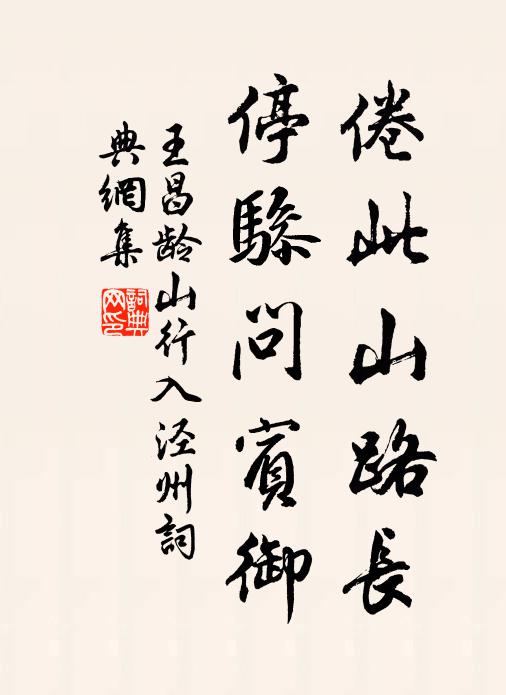 倦此山路長
停驂問賓御
王昌龄山行入泾州詞
典網集
詞典
网印